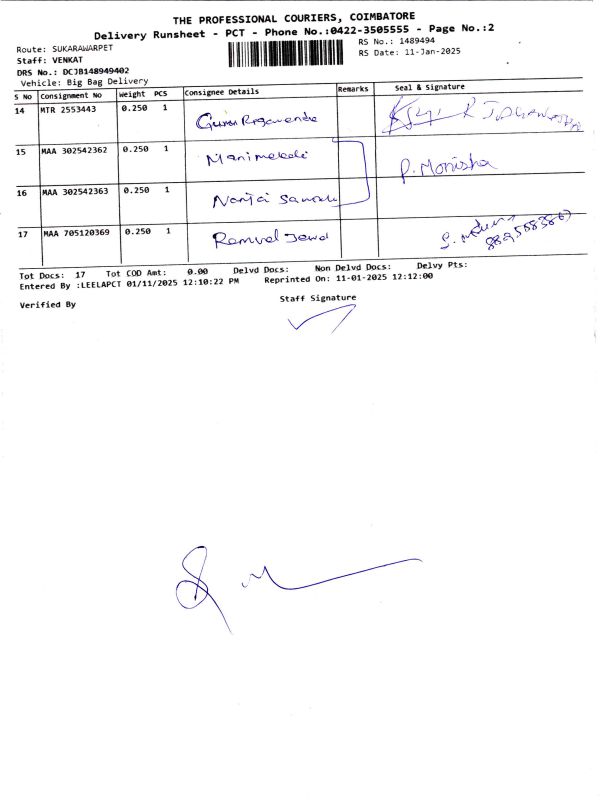 THE PROFESSIONAL COURIERS, COIMBATORE
Delivery Runsheet - PCT - Phone No.:0422-3505555 - Page No.:2
Route: SUKARAWARPET
RS No.: 1489494
Staff: VENKAT
RS Date: 11-Jan-2025
DRS No.: DCJB148949402
Vehicle: Big Bag Delivery
S No Consignment No Weight PCS Consignee Details Remarks Seal & Signature
14 MTR 2553443 0.250 1
15 MAA 302542362 0.250 1 Manimekali P. Monisha
16 MAA 302542363 0.250 1
17 MAA 705120369 0.250 1
Tot Docs: 17 Tot COD Amt: 0.00 Delvd Docs: Non Delvd Docs: Delvy Pts:
Entered By :LEELAPCT 01/11/2025 12:10:22 PM Reprinted On: 11-01-2025 12:12:00
Verified By Staff Signature